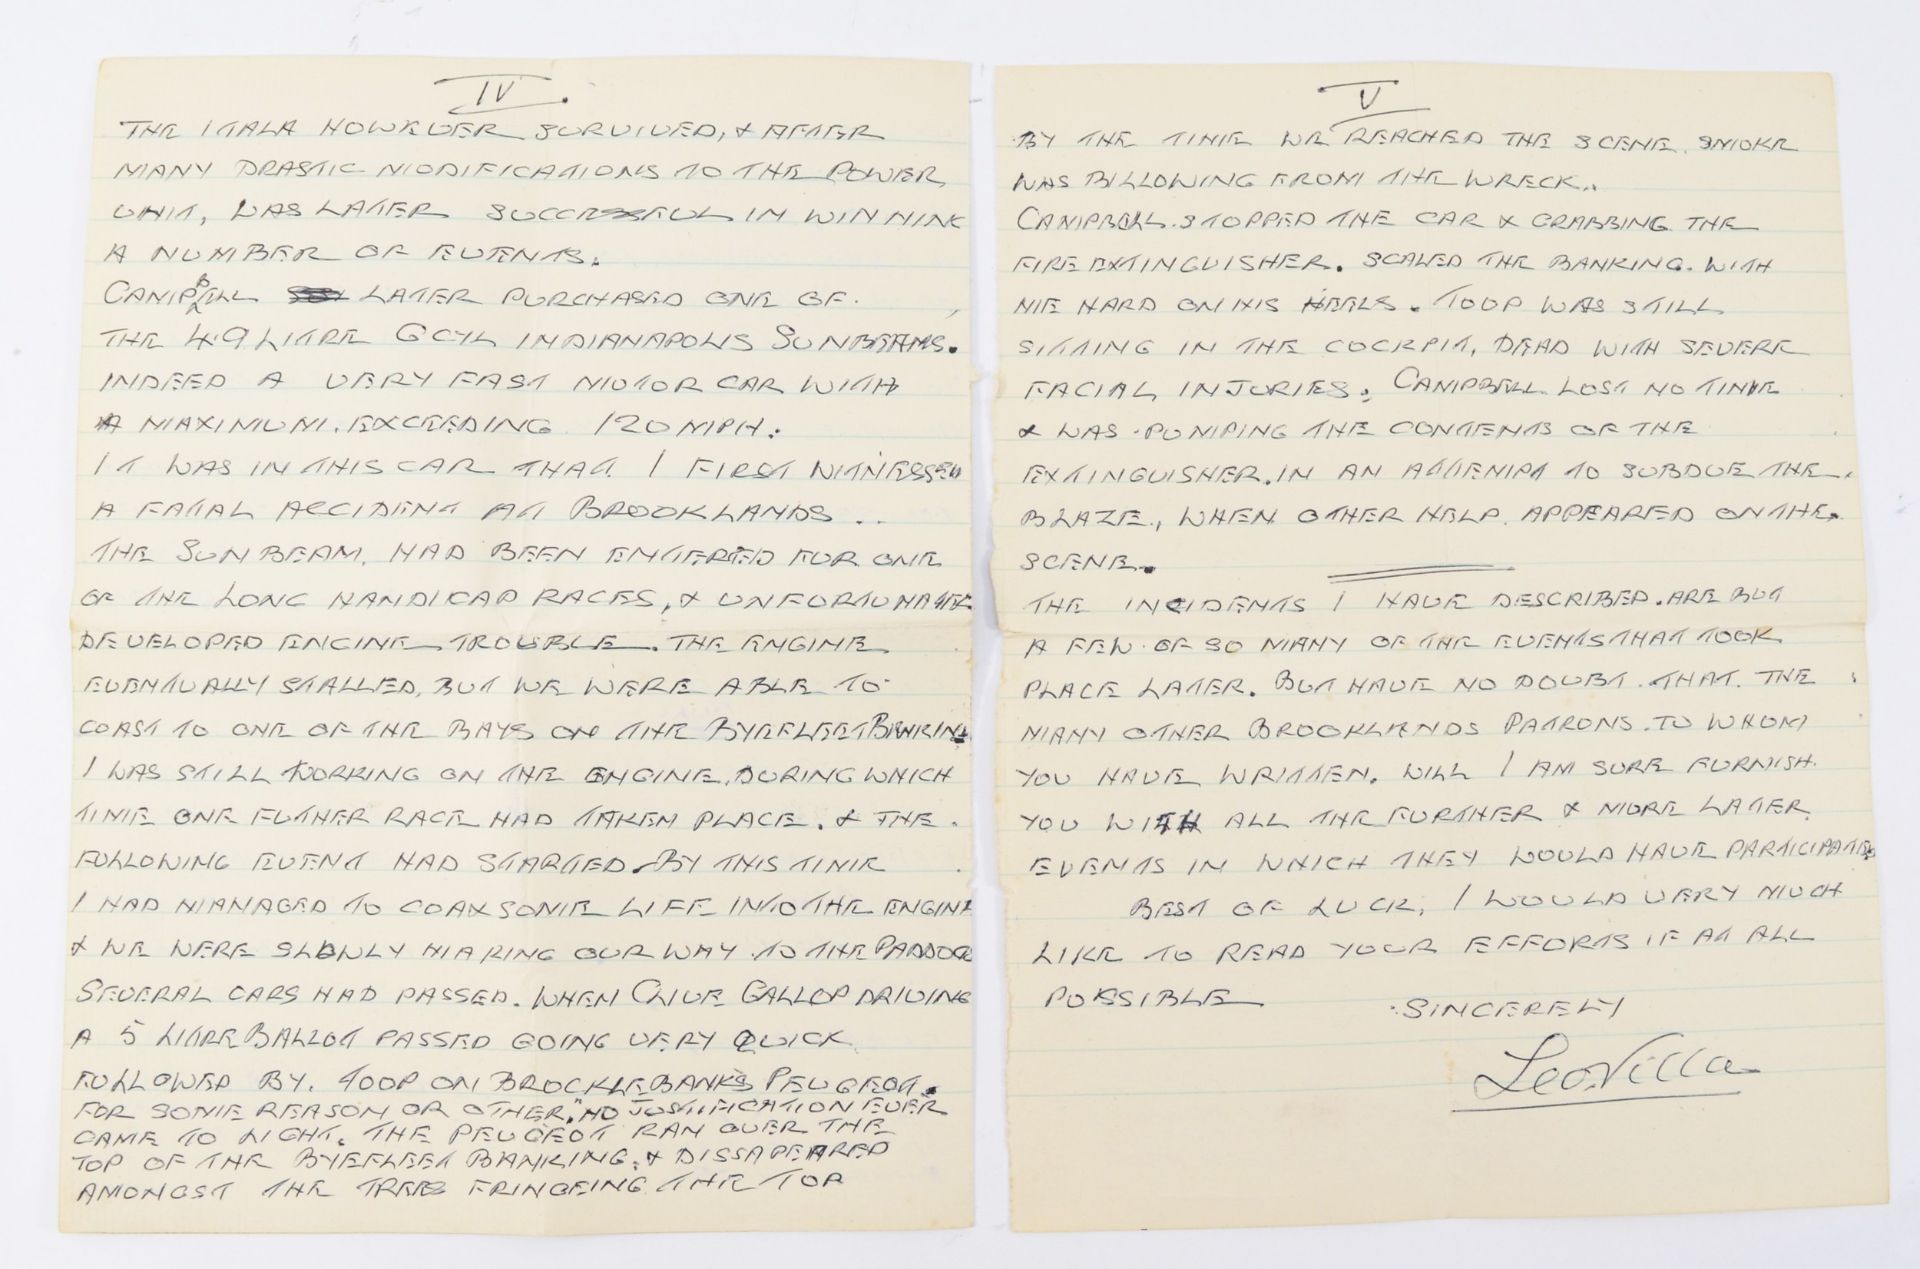 IV.
THE ITALA HOWEVER SURVIVED, & AFTER
MANY DRASTIC MODIFICATIONS TO THE POWER
UNIT, WAS LATER SUCCESSFUL IN WINNING
A NUMBER OF EVENTS.
CAMPBELL LATER PURCHASED ONE OF.
THE 4.9 LITRE 6 CYL INDIANAPOLIS SUNBEAMS.
INDEED A VERY FAST MOTOR CAR WITH
A MAXIMUM. EXCEEDING 120 MPH.
IT WAS IN THIS CAR THAT I FIRST WITNESSED
A FATAL ACCIDENT AT BROOKLANDS..
THE SUNBEAM, HAD BEEN ENTERED FOR ONE
OF THE LONG HANDICAP RACES, & UNFORTUNATELY
DEVELOPED ENGINE TROUBLE. THE ENGINE
EVENTUALLY STALLED, BUT WE WERE ABLE TO
COAST TO ONE OF THE BAYS ON THE BYEFLEET BANKING
I WAS STILL WORKING ON THE ENGINE. DURING WHICH
TIME ONE FUTHER RACE HAD TAKEN PLACE. & THE.
FOLLOWING EVENT HAD STARTED. BY THIS TIME
I HAD MANAGED TO COAX SOME LIFE INTO THE ENGINE
& WE WERE SLOWLY MAKING OUR WAY TO THE PADDOCK
SEVERAL CARS HAD PASSED. WHEN CLIVE GALLOP DRIVING
A 5 LITRE BALLOT PASSED GOING VERY QUICK
FOLLOWED BY. TOOP ON BROCKLEBANKS PEUGEOT.
FOR SOME REASON OR OTHER, "NO JUSTIFICATION EVER
CAME TO LIGHT. THE PEUGEOT RAN OVER THE
TOP OF THE BYEFLEET BANKING. & DISSAPEARED
AMONGST THE TREES FRINGEING THE TOP
V
BY THE TIME WE REACHED THE SCENE. SMOKE
WAS BILLOWING FROM THE WRECK..
CAMPBELL. STOPPED THE CAR & GRABBING THE
FIRE EXTINGUISHER. SCALED THE BANKING. WITH
ME HARD ON HIS HEELS. TOOP WAS STILL
SITTING IN THE COCKPIT, DEAD WITH SEVERE
FACIAL INJURIES. CAMPBELL LOST NO TIME
& WAS PUMPING THE CONTENTS OF THE
EXTINGUISHER. IN AN ATTEMPT TO SUBDUE THE.
BLAZE, WHEN OTHER HELP. APPEARED ON THE.
SCENE.
THE INCIDENTS I HAVE DESCRIBED. ARE BUT
A FEW OF SO MANY OF THE EVENTS THAT TOOK
PLACE LATER. BUT HAVE NO DOUBT. THAT. THE
MANY OTHER BROOKLANDS PATRONS. TO WHOM
YOU HAVE WRITTEN. WILL I AM SURE FURNISH.
YOU WITH ALL THE FURTHER & MORE LATER
EVENTS IN WHICH THEY WOULD HAVE PARTICIPATED
BEST OF LUCK, I WOULD VERY MUCH
LIKE TO READ YOUR EFFORTS IF AT ALL
POSSIBLE
SINCERELY
Leo Villa